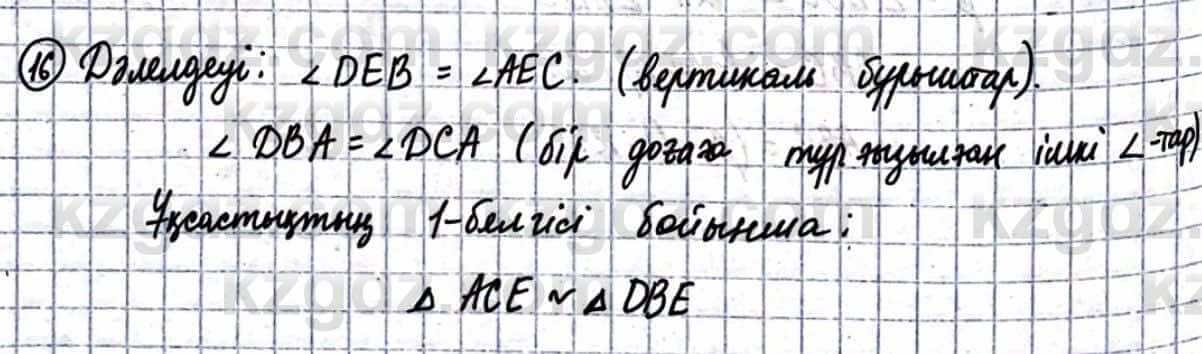 16) Дәлелдеуі: ∠DEB = ∠AEC. (вертикаль бұрыштар).
∠DBA = ∠DCA (бір доғаға тұрғызылған ішкі ∠-тар)
Ұқсастықтың 1-белгісі бойынша:
△ ACE ~ △ DBE